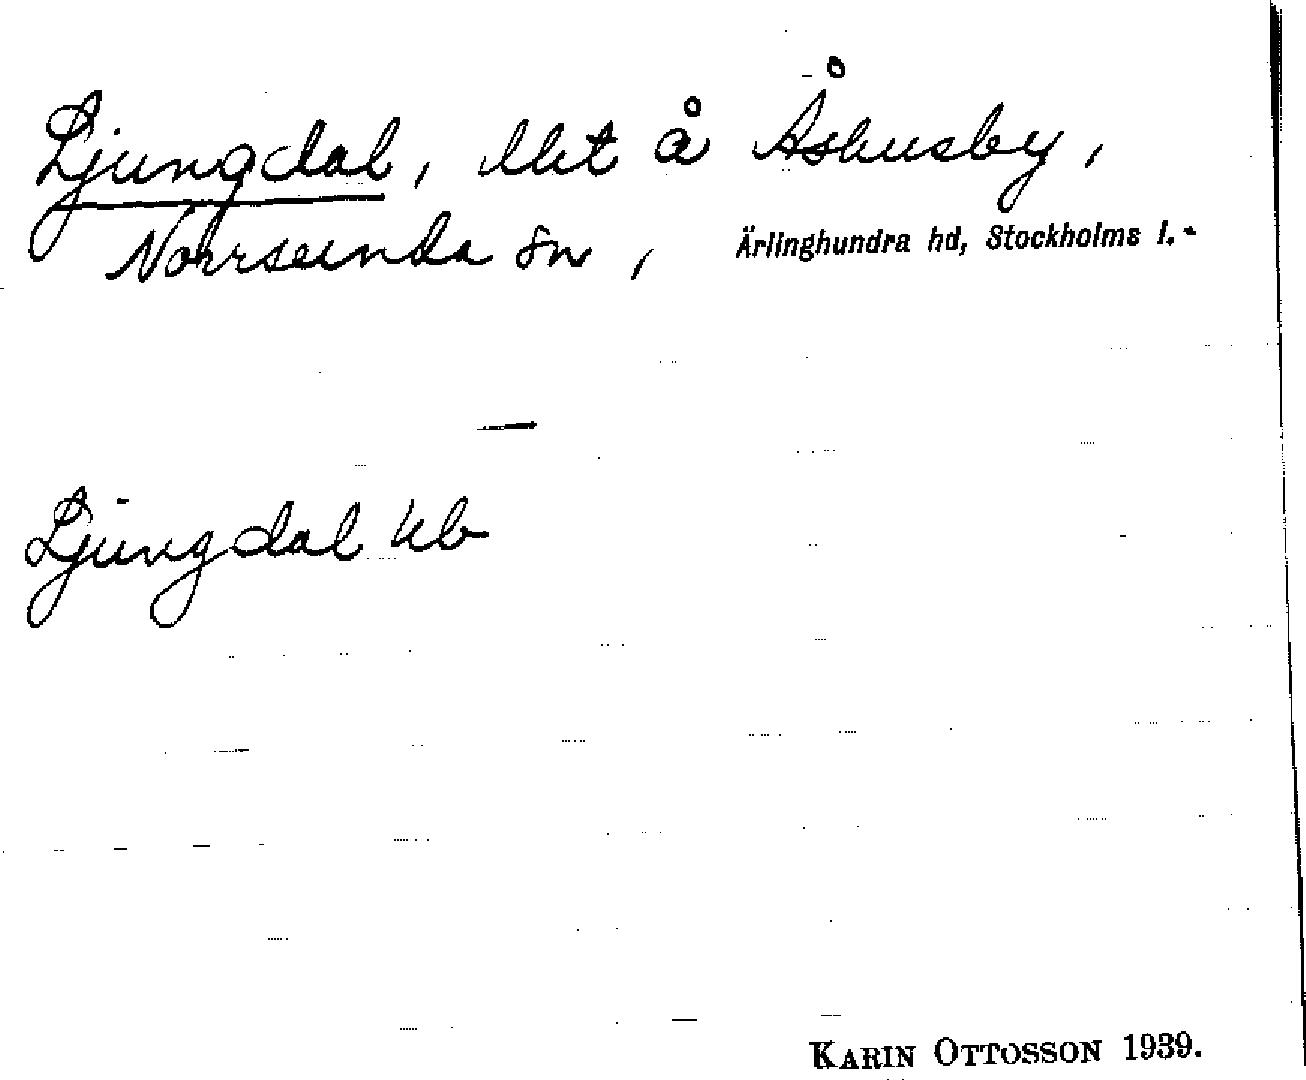 Ljungdal, lht å Åshusby,
Norrsunda sn, Ärlinghundra hd, Stockholms l.
Ljungdal kb
KARIN OTTOSSON 1939.